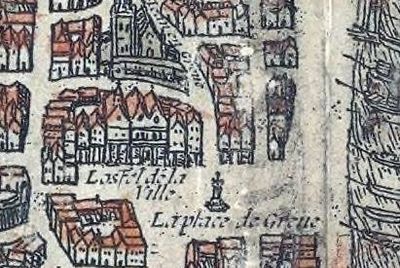 Lostel de la
Ville
La place de Greue